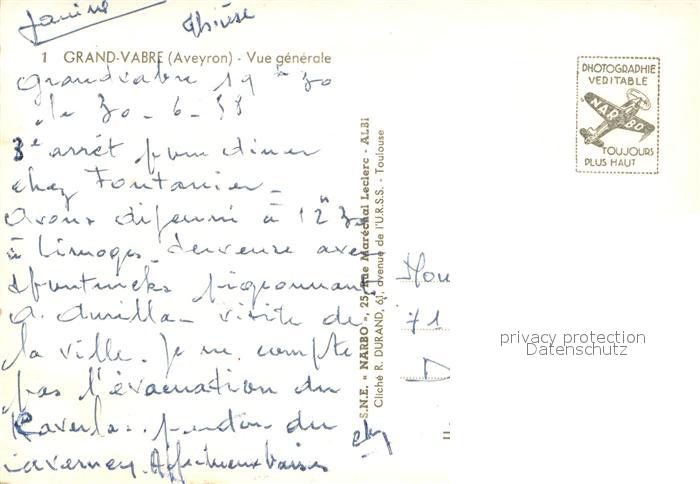 Janine
Thérèse
1 GRAND-VABRE (Aveyron) - Vue générale
Grandvabre 19 h 30
le 30-6-58
3e arrêt pour diner
chez Fontanier -
Avons déjeuné à 12h 30
à Limoges - avec
à Aurillac - visite de
la ville. Je ne compte
pas l'évacuation du
du
Affectueux baisers
S.N.E. « NARBO », 25, Rue Maréchal Leclerc - ALBI
Cliché R. DURAND, 61, avenue de l'U.R.S.S. - Toulouse
PHOTOGRAPHIE
VERITABLE
NARBO
TOUJOURS
PLUS HAUT
Mou
71
D
privacy protection
Datenschutz